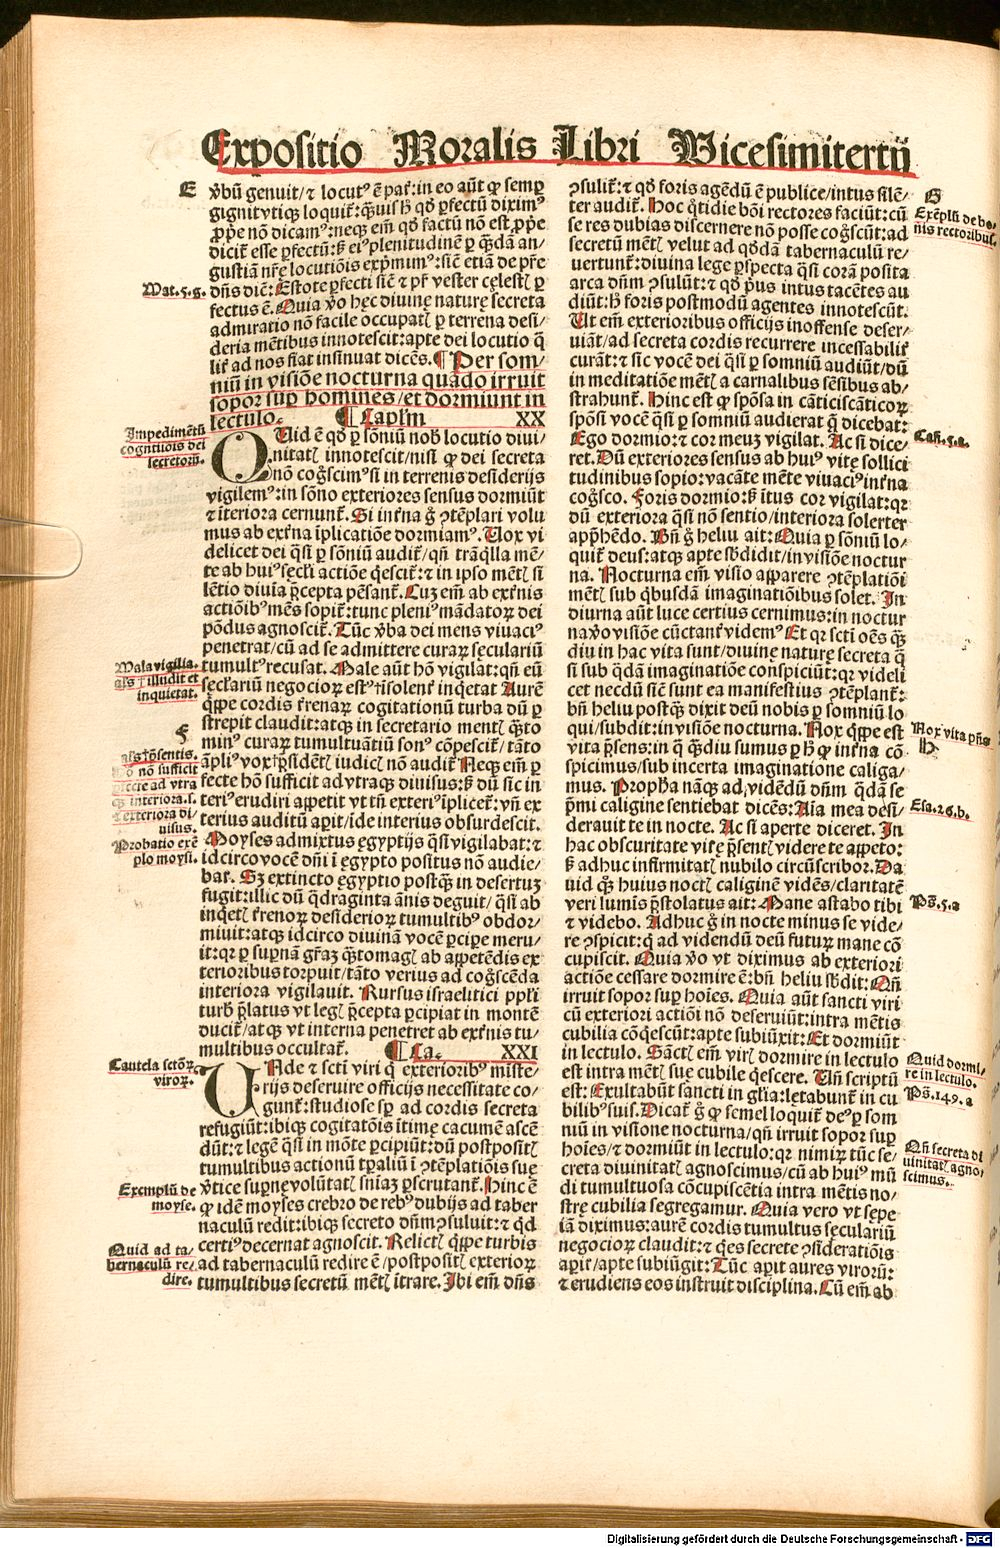 Expositio Moralis Libri Vicesimitertij
E
v̄bū genuit/⁊ locutꝰ ē pat̄: in eo aūt ꝙ semꝑ
gignit vtiqꝫ loquit̄: q̄uis h̄ qd̛ ꝑfectū diximꝰ
ꝓp̄e nō dicamꝰ: neqꝫ em̄ qd̛ factū nō est ꝓp̄e
dicit̄ esse ꝑfectū: ß eiꝰ plenitudinē ꝑ q̄dā an/
gustiā nr̄e locutiōis exp̄mimꝰ: sic̄ etiā de pr̄e
Mat. 5. g.
dn̄s dic̄: Estote ꝑfecti sic̄ ⁊ pr̄ vester cęlestꝭ ꝑ
fectus ē. Quia v̄o hęc diuinę naturę secreta
admiratio nō facile occupatꝭ ꝑ terrena desi/
deria mētibus innotescit: apte dei locutio q̄
lit̄ ad nos fiat insinuat dicēs. ¶ Per som/
niū in visiōe nocturna quādo irruit
sopor suꝑ homines/et dormiunt in
lectulo. ¶ Capl̄m XX
Impedimētū
cogn̄tiōis dei
secretoꝝ.
QUid ē qd̛ ꝑ sōniū nob̄ locutio diui/
nitatꝭ innotescit/nisi ꝙ dei secreta
nō cog̊scimꝰ si in terrenis desiderijs
vigilemꝰ: in sōno exteriores sensus dormiūt
⁊ īteriora cernunt̄. Si int̄na g̊ ꝯtēplari volu
mus ab ext̄na īplicatiōe dormiamꝰ. Uox vi
delicet dei q̄si ꝑ sōniū audit̄/qn̄ trāq̇lla mē/
te ab huiꝰ sęcl̄i actiōe q̇escit̄: ⁊ in ipso mētꝭ si
lētio diuīa p̄cepta pēsant̄. Cuꝫ em̄ ab ext̄nis
actiōibꝰ mēs sopit̄: tunc pleniꝰ mādatoꝝ dei
pōdus agnoscit̄. Tūc v̄ba dei mens viuaciꝰ
penetrat/cū ad se admittere curaꝝ sęculariū
Mala vigilia.
tumultꝰ recusat. Male aūt hō vigilat: qn̄ eū
als̄ † illudit et
inquietat.
sęcl̄ariū negocioꝝ estꝰ † īsolent̄ inq̇etat Aurē
q̇ppe cordis t̄renaꝝ cogitationū turba dū ꝑ
strepit claudit: atqꝫ in secretario mentꝭ q̄to
F
minꝰ curaꝝ tumultuātiū sonꝰ cōpescit̄/tāto
als̄ † p̄sentis.
āpliꝰ vox † p̄sidētꝭ iudicꝭ nō audit̄ Neqꝫ em̄ ꝑ
nō sufficit
fecte hō sufficit ad vtraqꝫ diuisus: ß dū sic in
ad vtra
qꝫ interiora. s.
teriꝰ erudiri appetit vt tn̄ exteriꝰ īplicet̄: vn̄ ex
⁊ exteriora di
uisus.
terius auditū aꝑit/īde interius obsurdescit.
Probatio exē
plo moysi.
Moyses admixtus ęgyptijs q̄si vigilabat: ⁊
idcirco vocē dn̄i ī ęgypto positus nō audie/
bat. Sꝫ extincto ęgyptio postq̄ in desertuꝫ
fugit: illic dū q̄draginta ānis deguit/q̄si ab
inq̇etꝭ t̄renoꝝ desideriorꝝ tumultibꝰ obdor/
miuit: atqꝫ idcirco diuinā vocē ꝑciꝑe meru/
it: qꝛ ꝑ supnā gr̄aꝫ q̄tomagꝭ ab appetēdis ex
terioribus torpuit/tāto verius ad cog̊scēda
interiora vigilauit. Rursus israelitici ppl̄i
turb̄ p̄latus vt legꝭ p̄cepta ꝑcipiat in montē
ducit̄/atqꝫ vt interna penetret ab ext̄nis tu/
multibus occultat̄. ¶ Ca. XXI
Cautela sctōꝝ
viroꝝ.
UNde ⁊ scti viri q̇ exterioribꝰ miste/
rijs deseruire officijs necessitate co/
gunt̄: studiose sꝑ ad cordis secreta
refugiūt: ibiqꝫ cogitatōis ītimę cacumē ascē
dūt: ⁊ legē q̄si in mōte ꝑcipiūt: dū postpositꝭ
tumultibus actionū tꝑaliū ī ꝯtēplatiōis suę
v̄tice supnę volūtatꝭ snīaꝫ ꝑscrutant̄. Hinc ē
Exemplū de
moyse.
ꝙ idē moyses crebro de rebꝰ dubijs ad taber
naculū redit: ibiqꝫ secreto dn̄m ꝯsuluit: ⁊ qd̛
certiꝰ decernat agnoscit. Relictꝭ q̇ppe turbis
Quid ad ta/
bernaculū re/
dire.
ad tabernaculū redire ē/postpositꝭ exterioꝝ
tumultibus secretū mētꝭ ītrare. Ibi em̄ dn̄s
ꝯsulit̄: ⁊ qd̛ foris agēdū ē publice/intus silē/
G
Exēplū de bo
nis rectoribus.
ter audit̄. Hoc q̊tidie bōi rectores faciūt: cū
se res dubias discernere nō posse cog̊scūt: ad
secretū mētꝭ velut ad qd̛dā tabernaculū re/
uertunt̄: diuina lege ꝑspecta q̄si corā posita
arca dn̄m ꝯsulūt: ⁊ qd̛ p̄us intus tacētes au
diūt: h̄ foris postmodū agentes innotescūt.
Ut em̄ exterioribus officijs inoffense deser/
uiāt/ad secreta cordis recurrere incessabilit̄
curāt: ⁊ sic vocē dei q̄si ꝑ somniū audiūt/dū
in meditatiōe mētꝭ a carnalibus sēsibus ab/
strahunt̄. Hinc est ꝙ spōsa in cāticis cāticoꝝ
spōsi vocē q̄si ꝑ somniū audierat q̄ dicebat:
Cāt. 5. a.
Ego dormio: ⁊ cor meuꝫ vigilat. Ac si dice/
ret. Dū exteriores sensus ab huiꝰ vitę sollici
tudinibus sopio: vacāte mēte viuaciꝰ int̄na
cog̊sco. Foris dormio: ß ītus cor vigilat: qꝛ
dū exteriora q̄si nō sentio/interiora solerter
app̄hēdo. Bn̄ g̊ heliu ait: Quia ꝑ sōniū lo/
quit̄ deus: atqꝫ apte sb̄didit/in visiōe noctur
na. Nocturna em̄ visio apparere ꝯtēplatiōi
mētꝭ sub q̇busdā imaginatiōibus solet. In
diurna aūt luce certius cernimus: in noctur
na v̄o visiōe cūctant̄ videmꝰ Et qꝛ scti oēs q̄
diu in hac vita sunt/diuinę naturę secreta q̄
si sub q̄dā imaginatiōe conspiciūt: qꝛ videli
cet necdū sic̄ sunt ea manifestius ꝯtēplant̄:
bn̄ heliu postq̄ dixit deū nobis ꝑ somniū lo
Nox vita p̄ns
H
qui/subdit: in visiōe nocturna. Nox q̇ppe est
vita p̄sens: in q̄ q̄diu sumus ꝑ h̄ ꝙ int̄na cō
spicimus/sub incerta imaginatione caliga/
mus. Propha nāqꝫ ad/vidēdū dn̄m q̄dā se
Esa. 26. b.
p̄mi caligine sentiebat dicēs: Aīa mea desi/
derauit te in nocte. Ac si aperte diceret. In
hac obscuritate vitę p̄sentꝭ videre te appeto:
ß adhuc infirmitatꝭ nubilo circūscribor. Da
uid qꝫ huius noctꝭ caliginē vidēs/claritatē
Ps̄. 5. a
veri lumīs p̄stolatus ait: Mane astabo tibi
⁊ videbo. Adhuc g̊ in nocte minus se vide/
re ꝯspicit: q̇ ad videndū deū futuꝝ mane cō
cupiscit. Quia v̄o vt diximus ab exteriori
actiōe cessare dormire ē: bn̄ heliu sb̄dit: Qn̄
irruit sopor suꝑ hoīes. Quia aūt sancti viri
cū exteriori actiōi nō deseruiūt: intra mētis
cubilia cōq̇escūt: apte subiūxit: Et dormiūt
Quid dormi/
re in lectulo.
in lectulo. Sāctꝭ em̄ virꝭ dormire in lectulo
est intra mētꝭ suę cubile q̇escere. Un̄ scriptū
Ps̄. 149. a
est: Exultabūt sancti in gl̄ia: lętabunt̄ in cu
bilibꝰ suis. Dicat̄ g̊ ꝙ semel loquit̄ deꝰ/ꝑ som
niū in visione nocturna/qn̄ irruit sopor suꝑ
Qn̄ secreta di
uinitatꝭ agno/
scimus.
hoīes/⁊ dormiūt in lectulo: qꝛ nimiꝝ tūc se/
creta diuinitatꝭ agnoscimus/cū ab huiꝰ mū
di tumultuosa cōcupiscētia intra mētis no/
strę cubilia segregamur. Quia vero vt sepe
iā diximus: aurē cordis tumultus sęculariū
negocioꝝ claudit: ⁊ q̇es secrete ꝯsideratiōis
aꝑit/apte subiūgit: Tūc aꝑit aures viroꝝ:
⁊ erudiens eos instruit disciplina. Cū em̄ ab
Digitalisierung gefördert durch die Deutsche Forschungsgemeinschaft - DFG